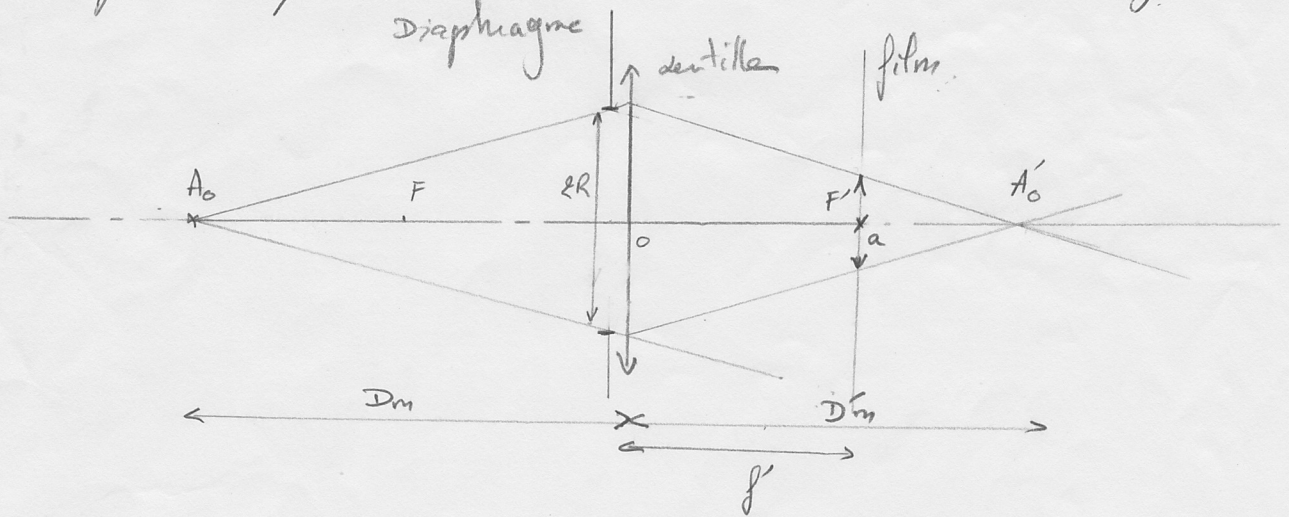 Diaphragme
lentille
film
A₀
F
2R
F'
A'₀
O
a
Dm
D'm
f'